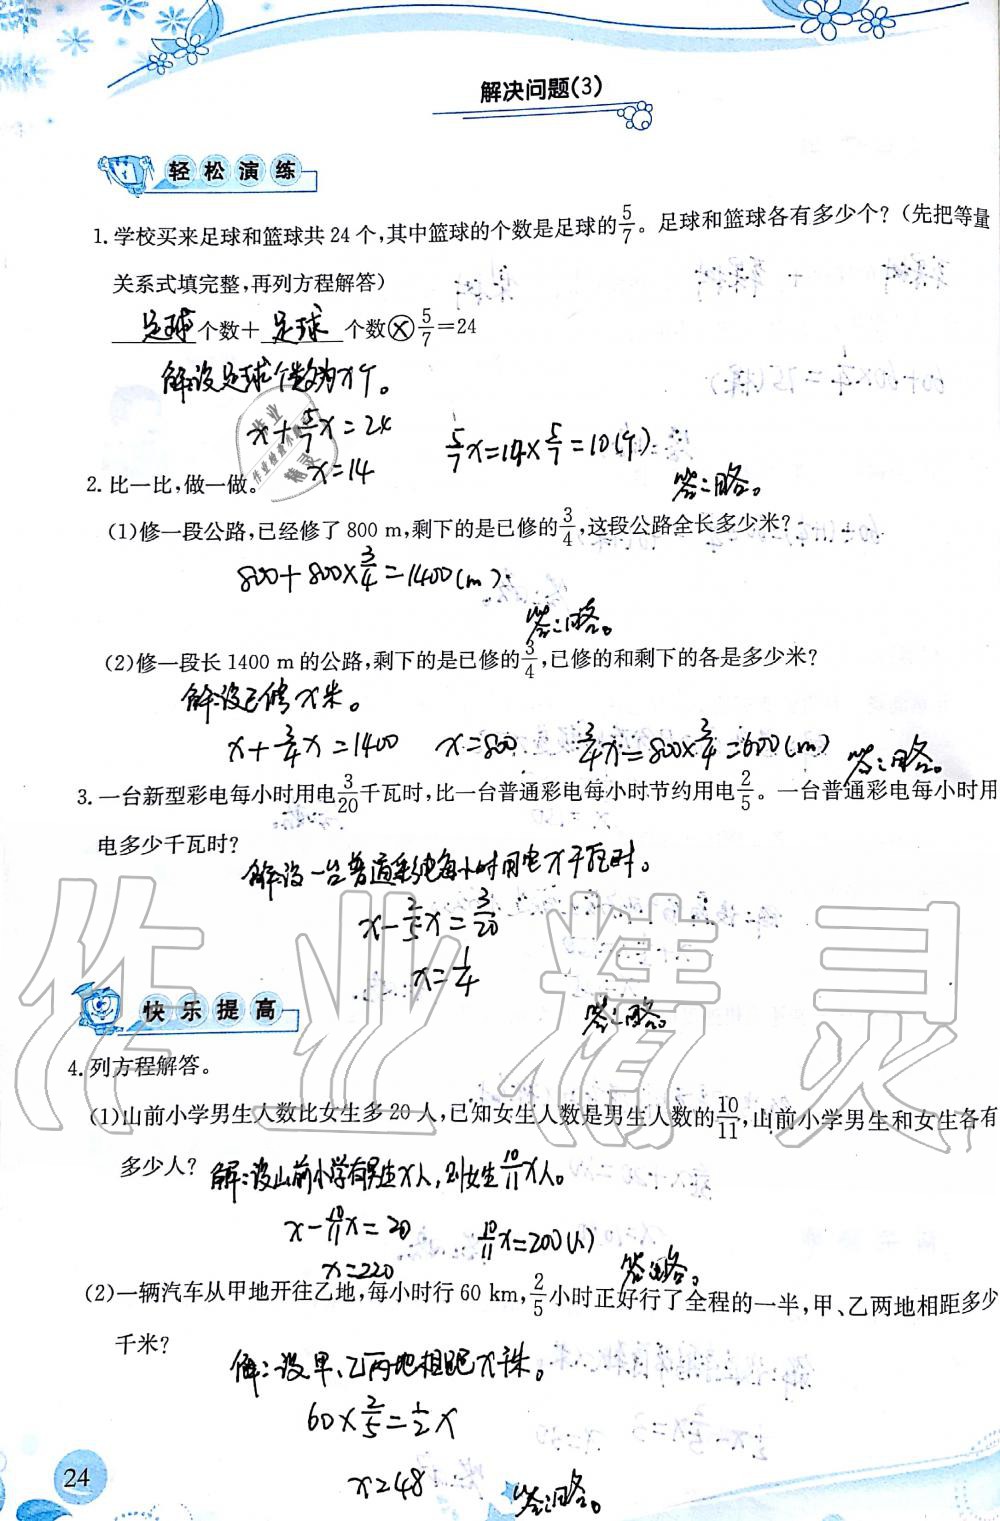 解决问题(3)
轻松演练
1.学校买来足球和篮球共24个,其中篮球的个数是足球的5/7。足球和篮球各有多少个?(先把等量
关系式填完整,再列方程解答)
足球个数+足球个数⊗5/7=24
解:设足球个数为x个。
x+5/7x=24
5/7x=14×5/7=10(个)
x=14
答:略。
2.比一比,做一做。
(1)修一段公路,已经修了800 m,剩下的是已修的3/4,这段公路全长多少米?
800+800×3/4=1400(m)
答:略。
(2)修一段长1400 m的公路,剩下的是已修的3/4,已修的和剩下的各是多少米?
解:设已修x米。
x+3/4x=1400 x=800 3/4x=800×3/4=600(m) 答:略。
3.一台新型彩电每小时用电3/20千瓦时,比一台普通彩电每小时节约用电2/5。一台普通彩电每小时用
电多少千瓦时?
解:设一台普通彩电每小时用电x千瓦时。
x-2/5x=3/20
x=1/4
答:略。
快乐提高
4.列方程解答。
(1)山前小学男生人数比女生多20人,已知女生人数是男生人数的10/11,山前小学男生和女生各有
多少人?
解:设山前小学有男生x人,则女生10/11x人。
x-10/11x=20 10/11x=200(人)
x=220
答:略。
(2)一辆汽车从甲地开往乙地,每小时行60 km,2/5小时正好行了全程的一半,甲、乙两地相距多少
千米?
解:设甲、乙两地相距x千米。
60×2/5=1/2x
x=48
答:略。
24
作业精灵